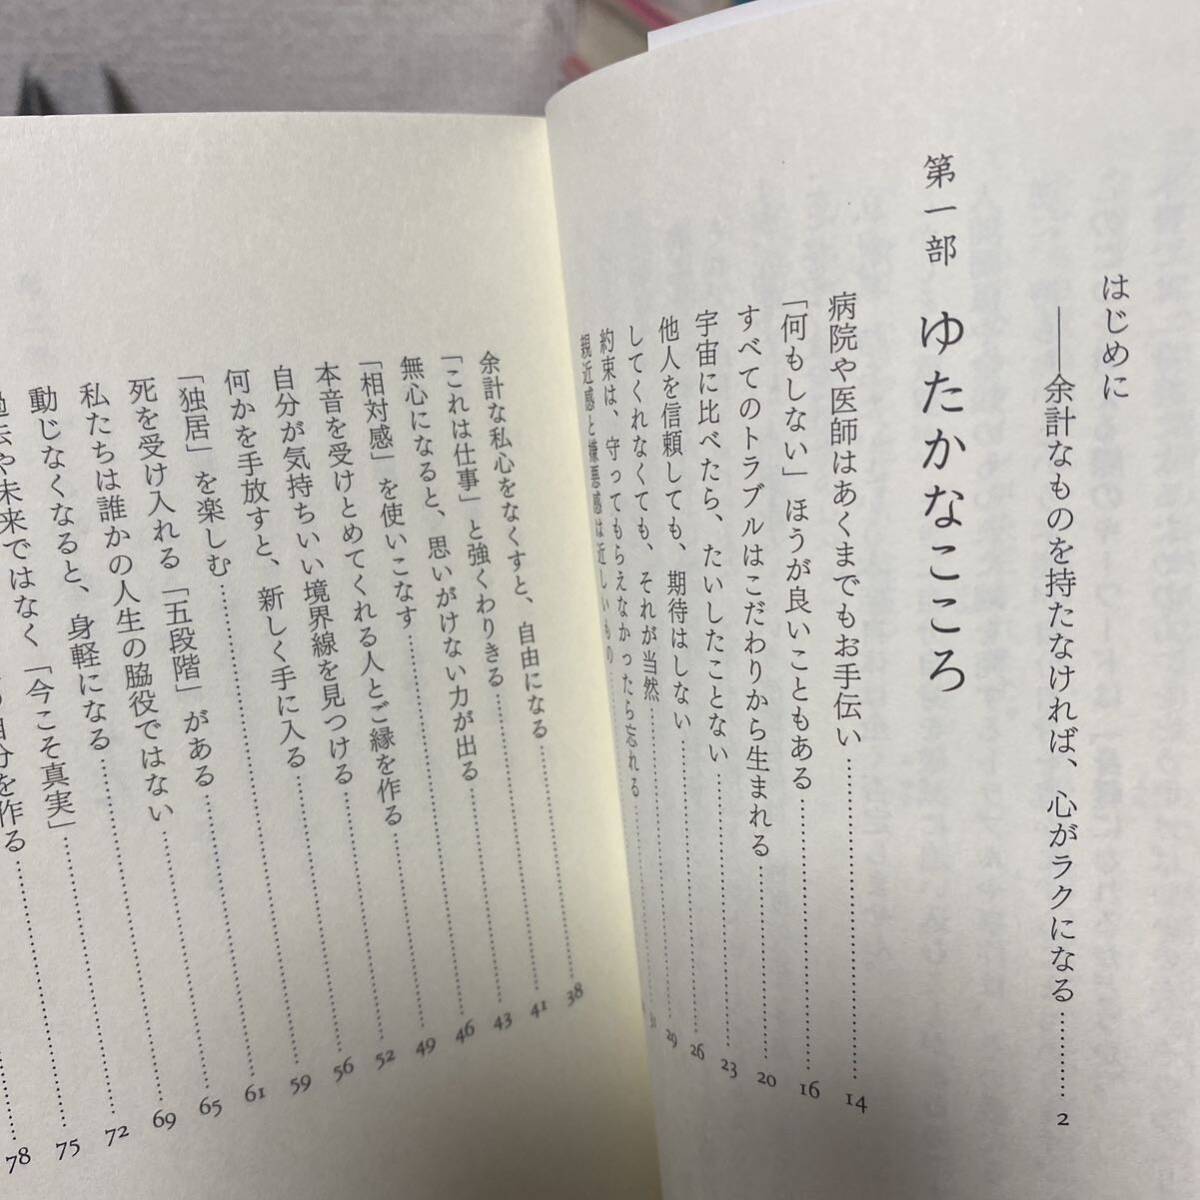 はじめに
――余計なものを持たなければ、心がラクになる………2
第一部　ゆたかなこころ
病院や医師はあくまでもお手伝い………14
「何もしない」ほうが良いこともある………16
すべてのトラブルはこだわりから生まれる………20
宇宙に比べたら、たいしたことない………23
他人を信頼しても、期待はしない………26
してくれなくても、それが当然………29
約束は、守ってもらえなかったら忘れる………31
親近感と嫌悪感は近しいもの………
余計な私心をなくすと、自由になる………38
「これは仕事」と強くわりきる………41
無心になると、思いがけない力が出る………43
「相対感」を使いこなす………46
本音を受けとめてくれる人とご縁を作る………49
自分が気持ちいい境界線を見つける………52
何かを手放すと、新しく手に入る………56
「独居」を楽しむ………59
死を受け入れる「五段階」がある………61
私たちは誰かの人生の脇役ではない………65
動じなくなると、身軽になる………69
過去や未来ではなく「今こそ真実」………72
自分を作る………75
78